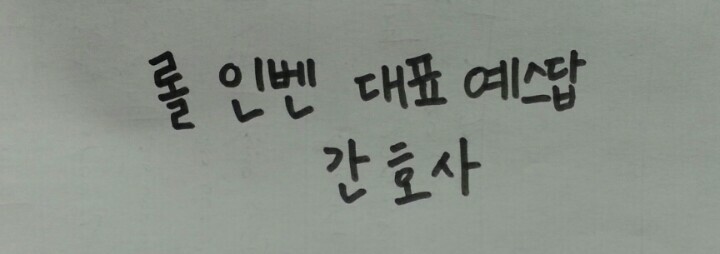 롤 인벤 대표 예스답
간호사